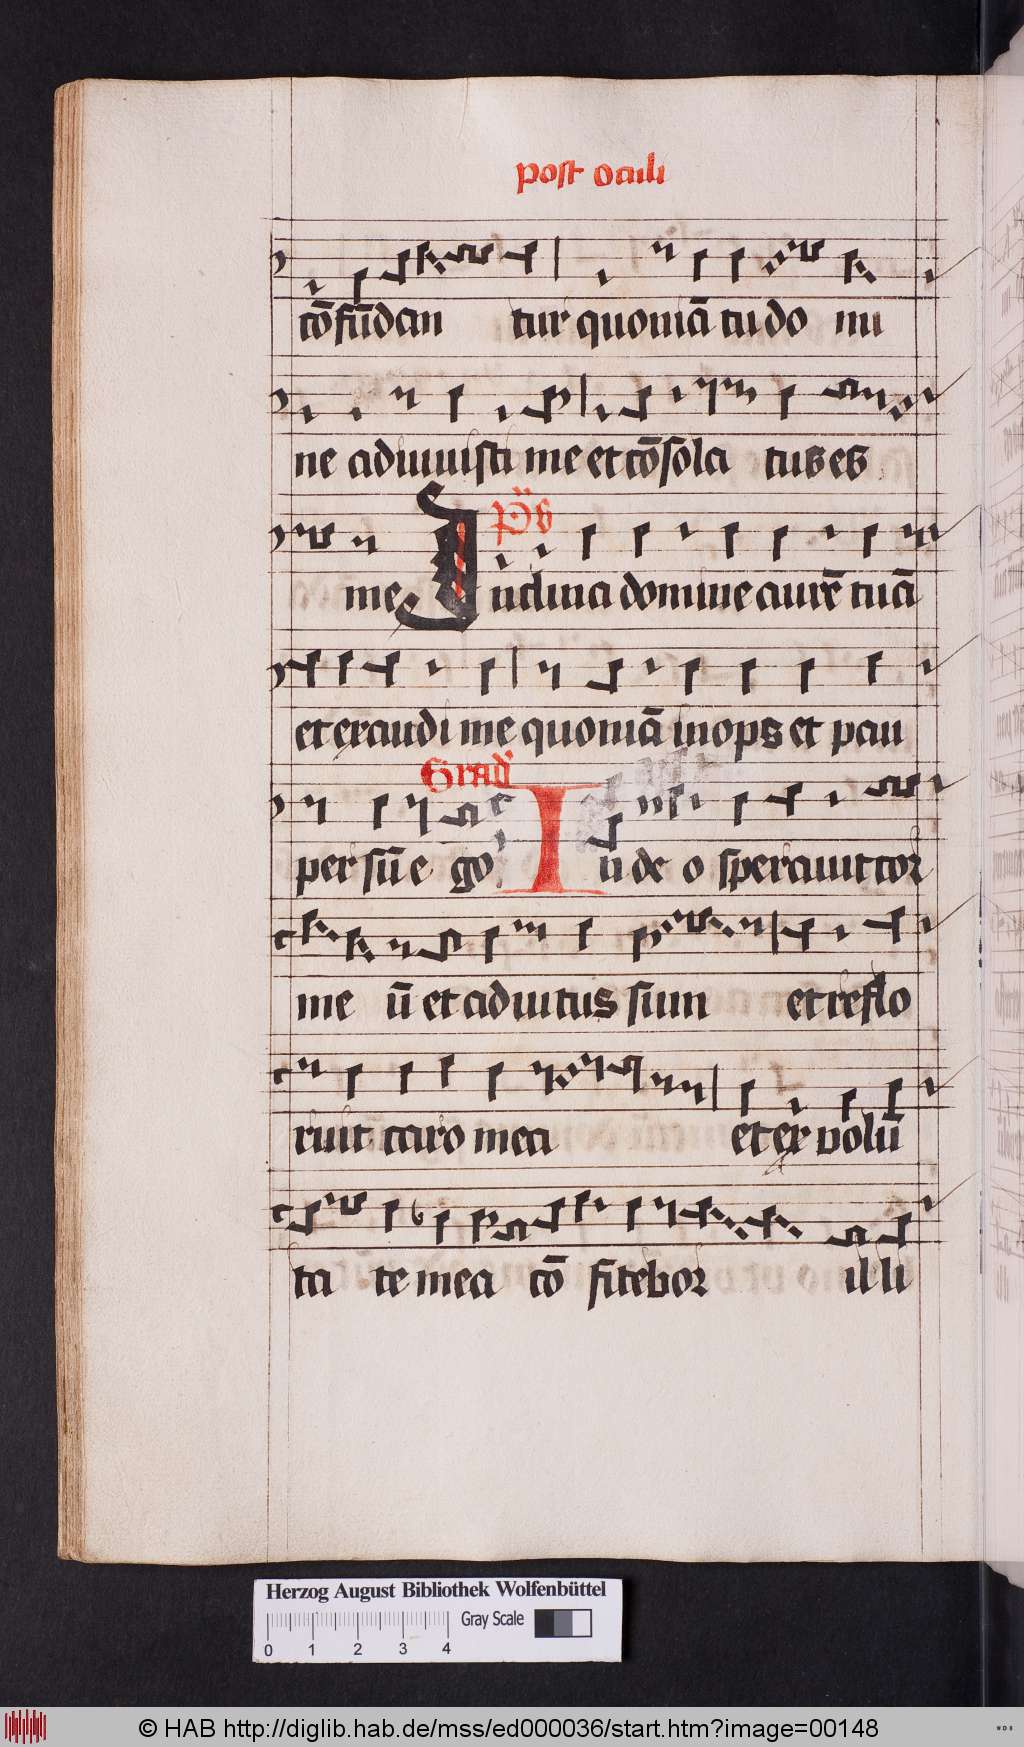 post oculi
cōfūdan tur quoniā tu do mi
ne adiuuisti me et cōsola tus es
me Ps Inclina domine aurē tuā
et exaudi me quoniā inops et pau
per sū e go Grad In de o sperauit cor
me ū et adiutus sum et reflo
ruit caro mea et ex volū
ta te mea cō fitebor illi
Herzog August Bibliothek Wolfenbüttel
Gray Scale
0 1 2 3 4
© HAB http://diglib.hab.de/mss/ed000036/start.htm?image=00148